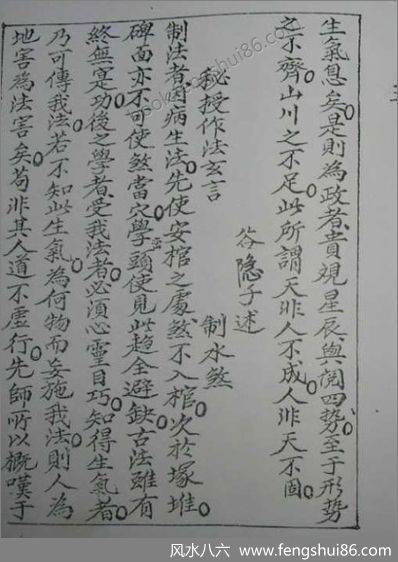 三
生氣息矣。是則為政者。貴覌星辰與閲四勢。至于形勢
之不齊。山川之不足。此所謂天非人不成。人非天不因。
谷隐子述
秘授作法玄言 制水煞
制法者因病生法。先使安棺之處煞不入棺。次於塚堆。
碑面亦不可使煞當穴。學頭使見此趨全避缺。古法雖有。
終無寔功。後之學者。受我法者。必須心靈目巧。知得生氣者。
乃可傳我法。若不知此生氣。為何物而妄施我法。則人為
地害。為法害矣。苟非其人道不虚行。先師所以概嘆于
风水八六 www.fengshui86.com